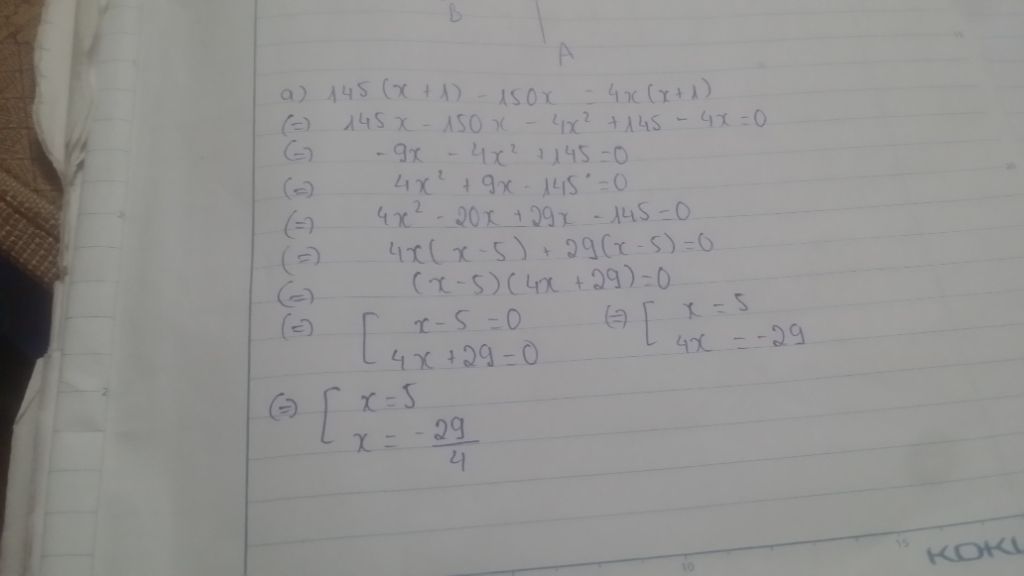 B
A
a) 145(x+1) - 150x = 4x(x+1)
(=) 145x - 150x - 4x² + 145 - 4x = 0
(=) -9x - 4x² + 145 = 0
(=) 4x² + 9x - 145 = 0
(=) 4x² - 20x + 29x - 145 = 0
(=) 4x(x-5) + 29(x-5) = 0
(=) (x-5)(4x+29) = 0
(=) [ x-5 = 0 (=) [ x = 5
4x+29 = 0 4x = -29
(=) [ x = 5
x = -29/4
10
15
KOKU